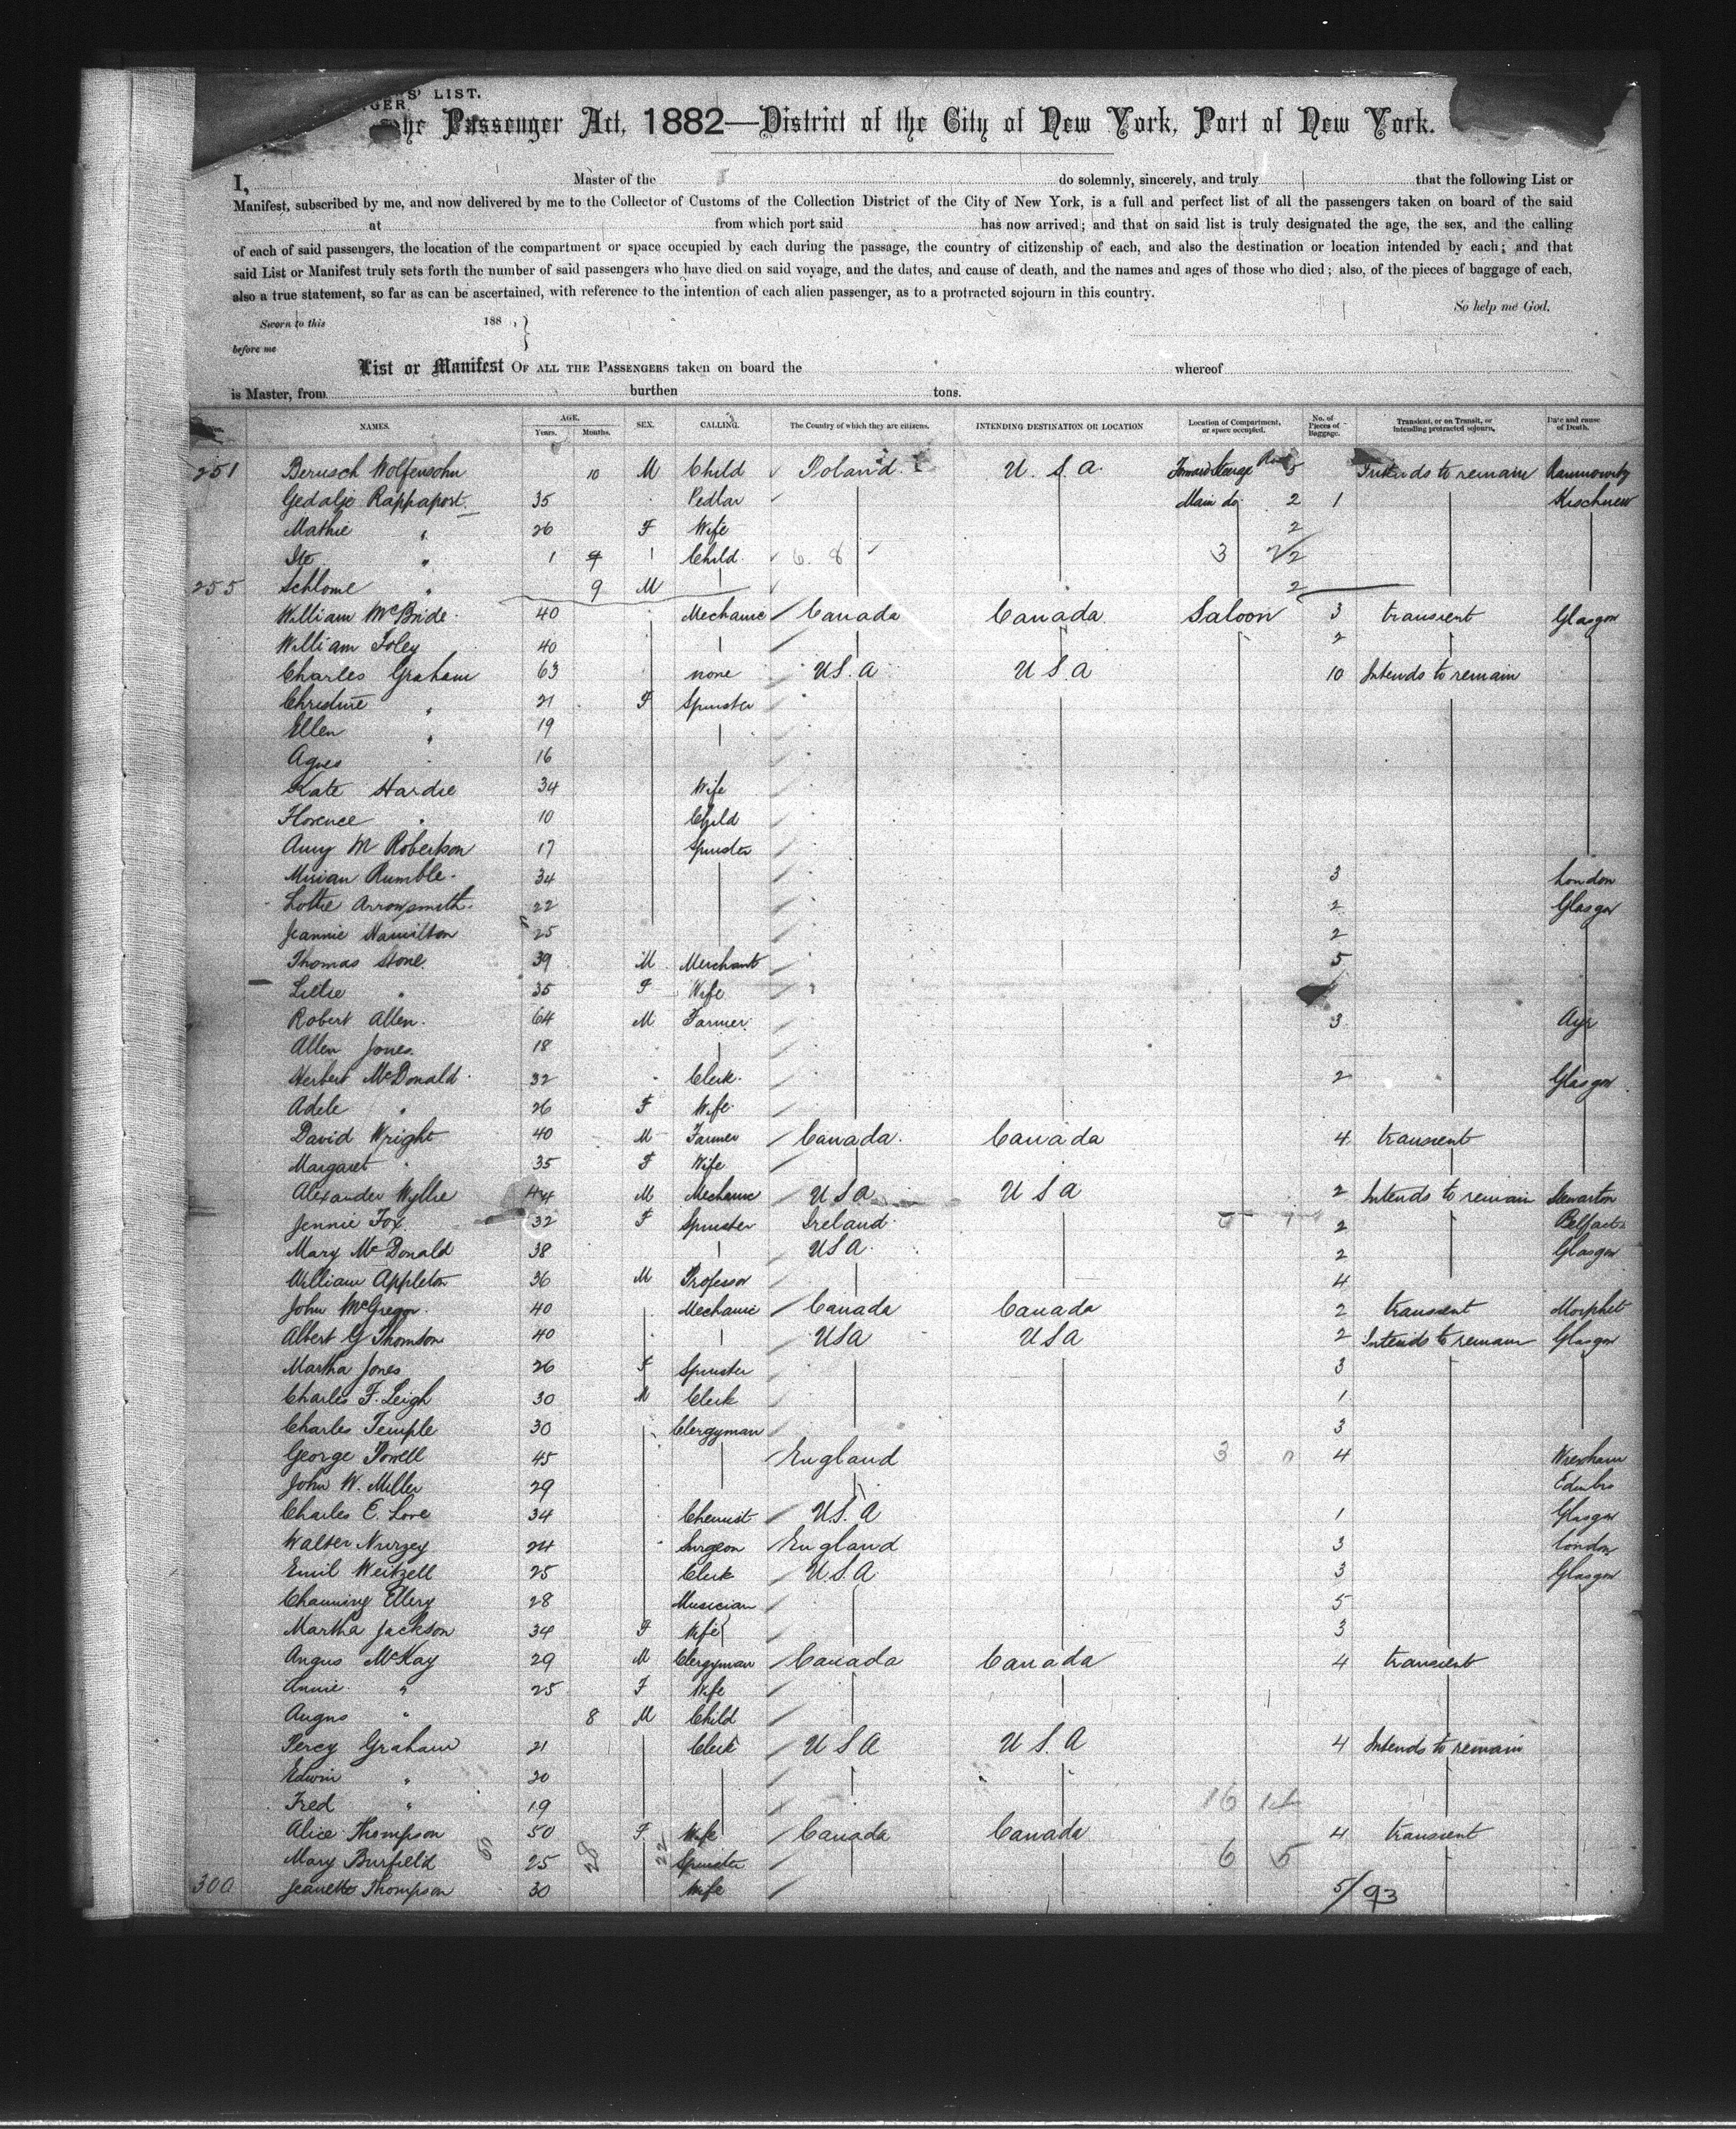 S' LIST.
GER
he Passenger Act, 1882—District of the City of New York, Port of New York.
I, Master of the do solemnly, sincerely, and truly that the following List or
Manifest, subscribed by me, and now delivered by me to the Collector of Customs of the Collection District of the City of New York, is a full and perfect list of all the passengers taken on board of the said
at from which port said has now arrived; and that on said list is truly designated the age, the sex, and the calling
of each of said passengers, the location of the compartment or space occupied by each during the passage, the country of citizenship of each, and also the destination or location intended by each; and that
said List or Manifest truly sets forth the number of said passengers who have died on said voyage, and the dates, and cause of death, and the names and ages of those who died; also, of the pieces of baggage of each,
also a true statement, so far as can be ascertained, with reference to the intention of each alien passenger, as to a protracted sojourn in this country.
So help me God.
Sworn to this 188 ,}
before me
List or Manifest OF ALL THE PASSENGERS taken on board the whereof
is Master, from burthen tons.
NAMES. AGE. Years. Months. SEX. CALLING. The Country of which they are citizens. INTENDING DESTINATION OR LOCATION Location of Compartment, or space occupied. No. of Pieces of Baggage. Transient, or on Transit, or intending protracted sojourn. Date and cause of Death.
251 Berusch Wolfensohn 10 M Child Poland U.S.A. 5 Intends to remain
Gedalje Rappaport 35 Pedlar Main do 2 1 Kischnew
Mathie " 26 F Wife 2
Ite " 1 Child 6 8 3 7/2
255 Schlome " 9 M 2
William McBride 40 Mechanic Canada Canada Saloon 3 transient Glasgow
William Foley 40 2
Charles Graham 63 none U.S.A U S.A 10 Intends to remain
Christine " 21 F Spinster
Ellen " 19
Agnes 16
Kate Hardie 34 Wife
Florence " 10 Child
Amy M Robertson 17 Spinster
Mirian Rumble 34 3 London
Lottie Arrowsmith 22 2 Glasgow
Jeannie Hamilton 25 2
Thomas Stone 39 M Merchant 5
Lillie " 35 F Wife
Robert Allen 64 M Farmer 3 Ayr
Allen Jones 18
Herbert McDonald 32 Clerk 2 Glasgow
Adele " 26 F Wife
David Wright 40 M Farmer Canada Canada 4 transient
Margaret " 35 F Wife
Alexander Wyllie 44 M Mechanic U S A U S A 2 Intends to remain Stewarton
Jennie Fox 32 F Spinster Ireland 2 Belfast
Mary McDonald 38 U S A 2 Glasgow
William Appleton 36 M Professor 4
John McGregor 40 Mechanic Canada Canada 2 transient Morphet
Albert G Thomson 40 U S A U S A 2 Intends to remain Glasgow
Martha Jones 26 F Spinster 3
Charles F. Leigh 30 M Clerk 1
Charles Temple 30 Clergyman 3
George Powell 45 England 3 4 Wrexham
John W. Miller 29 Edinbro
Charles E. Love 34 Chemist U.S.A 1 Glasgow
Walter Nurzey 24 Surgeon England 3 London
Emil Weitzell 25 Clerk U.S.A 3 Glasgow
Channing Ellery 28 Musician 5
Martha Jackson 34 F Wife 3
Angus McKay 29 M Clergyman Canada Canada 4 transient
Annie " 25 F Wife
Angus " 8 M Child
Percy Graham 21 Clerk U S A U S. A 4 Intends to remain
Edwin " 20
Fred " 19 16 14
Alice Thompson 50 F Wife Canada Canada 4 transient
Mary Burfield 25 28 22 Spinster 6 5
300 Jeanette Thompson 30 Wife 5/93